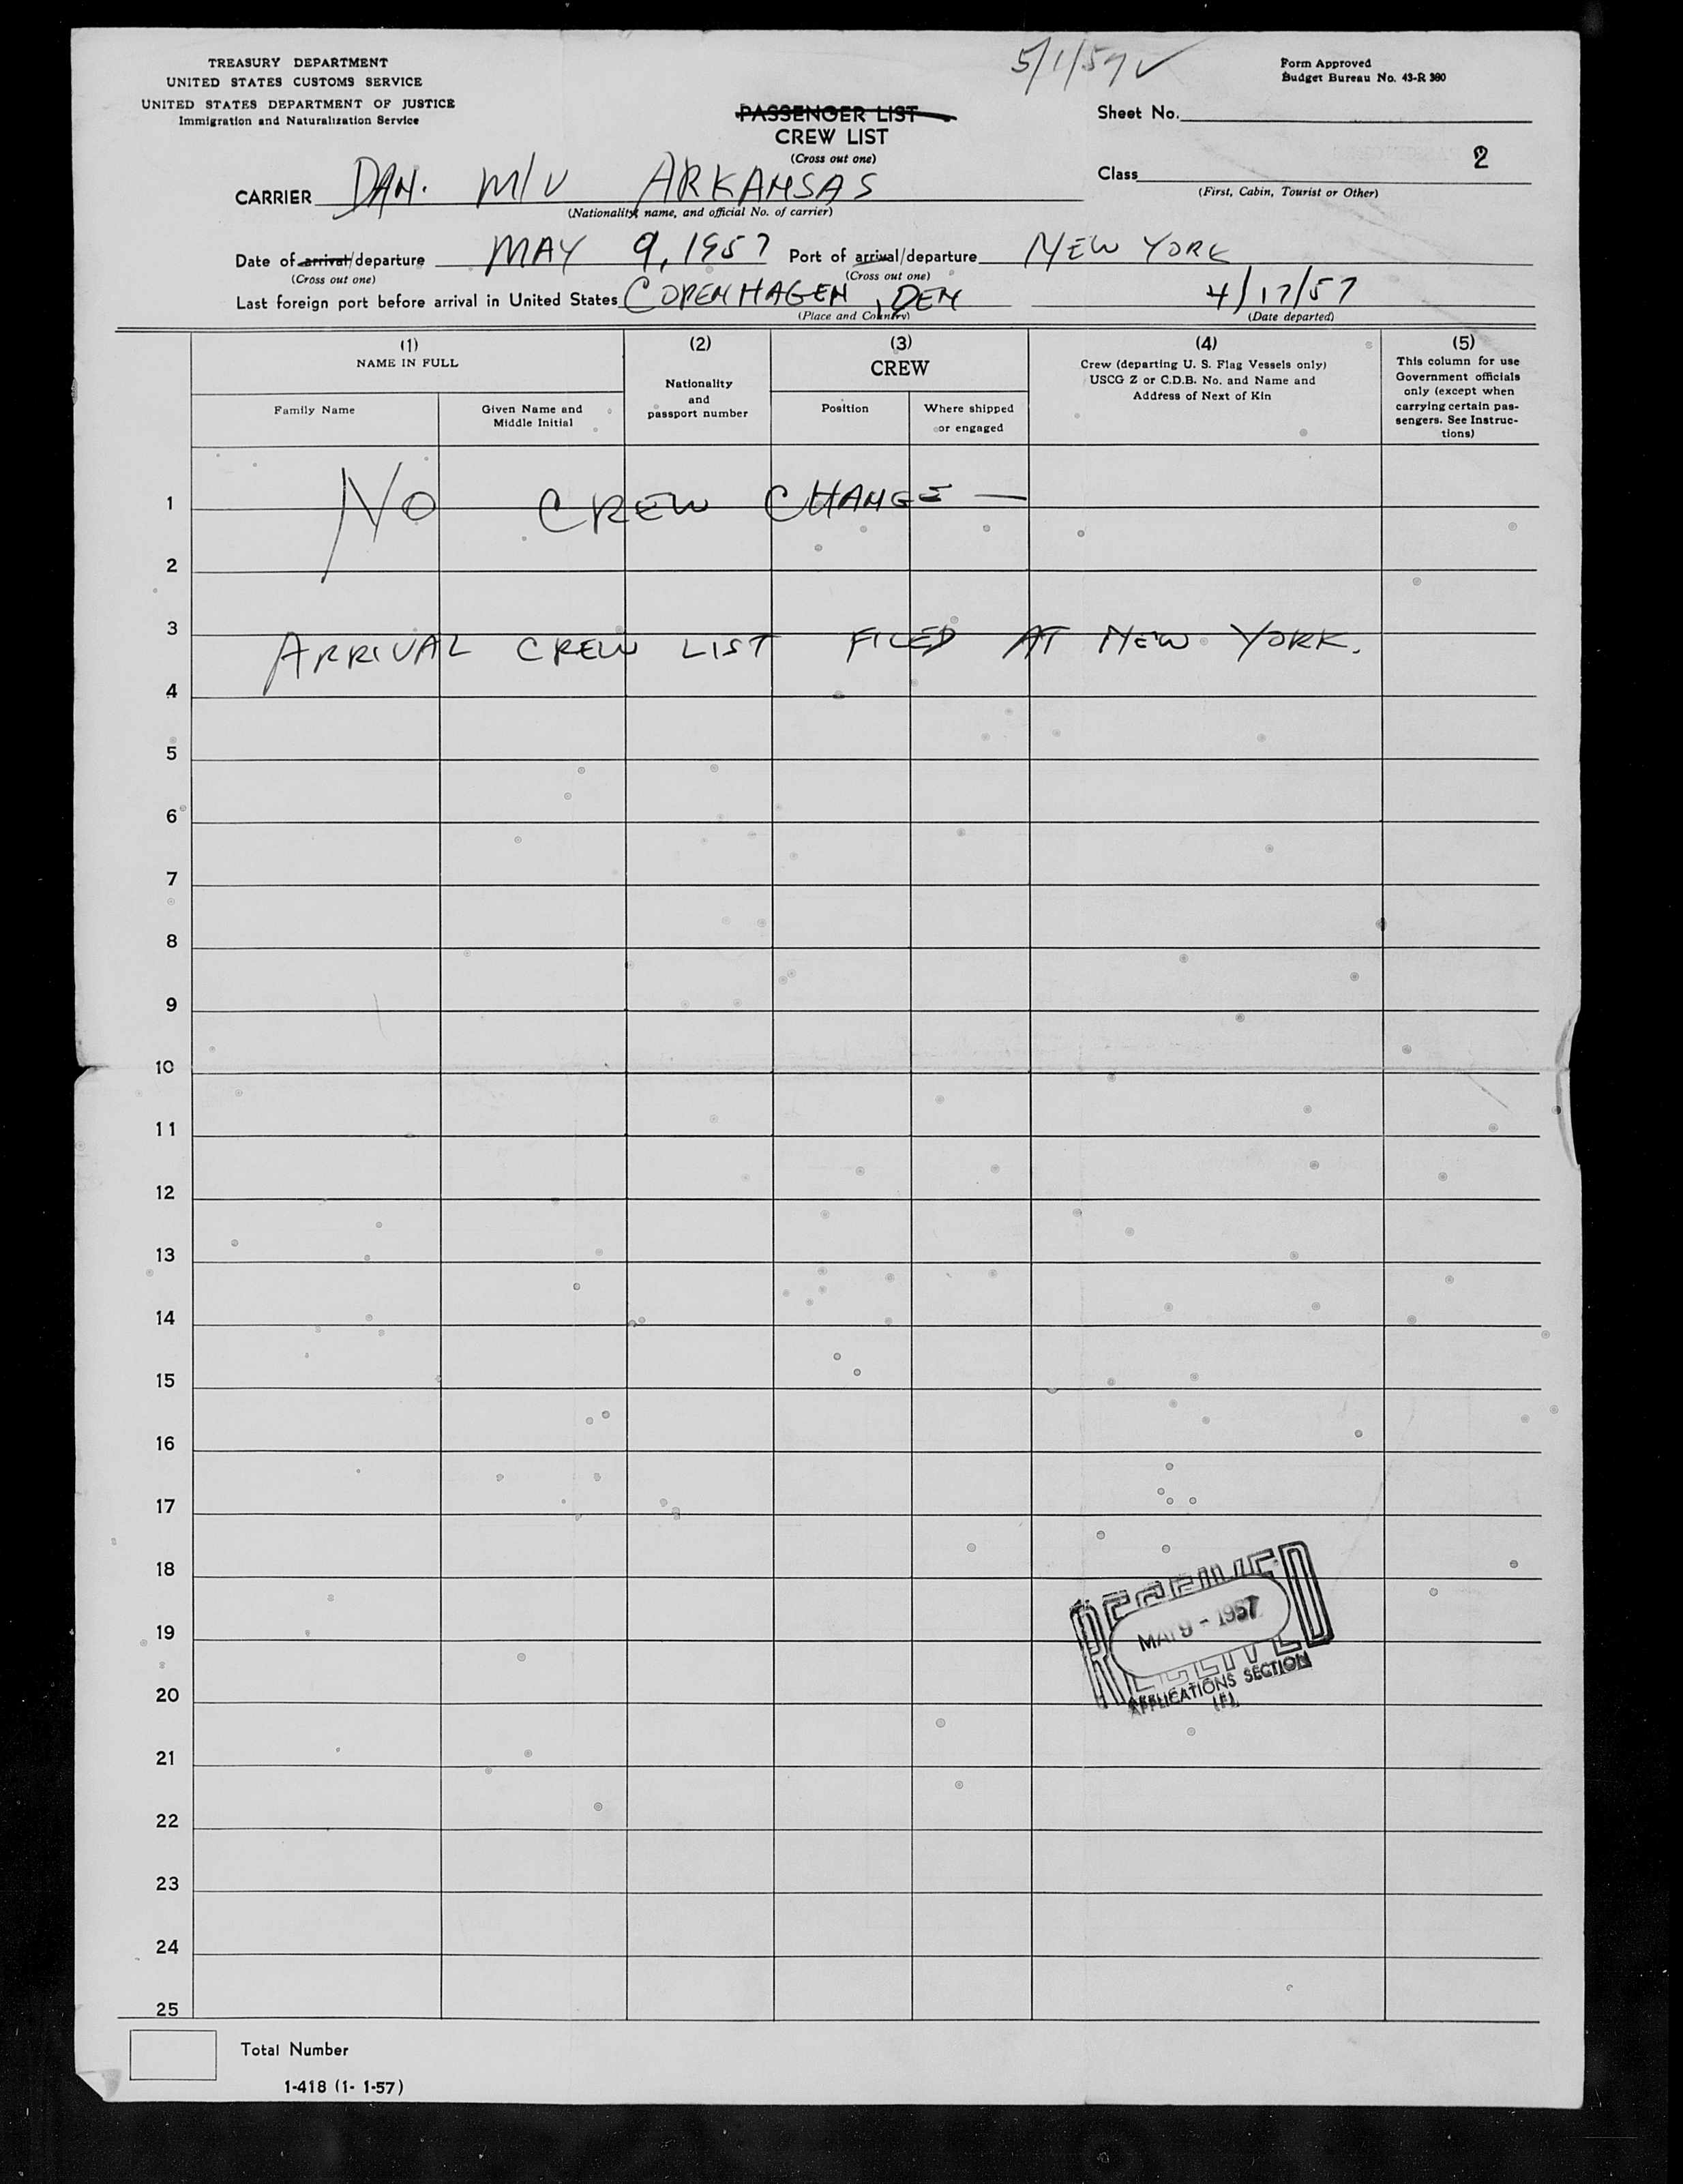 TREASURY DEPARTMENT
UNITED STATES CUSTOMS SERVICE
UNITED STATES DEPARTMENT OF JUSTICE
Immigration and Naturalization Service
5/1/57 ✓
Form Approved
Budget Bureau No. 43-R 390
PASSENGER LIST
CREW LIST
(Cross out one)
Sheet No.
2
Class
(First, Cabin, Tourist or Other)
CARRIER DAN. M/V ARKANSAS
(Nationality, name, and official No. of carrier)
Date of arrival/departure MAY 9, 1957 Port of arrival/departure NEW YORK
(Cross out one) (Cross out one)
Last foreign port before arrival in United States COPENHAGEN, DEN 4/17/57
(Place and Country) (Date departed)
(1) (2) (3) (4) (5)
NAME IN FULL
Family Name
Given Name and
Middle Initial
Nationality
and
passport number
CREW
Position
Where shipped
or engaged
Crew (departing U. S. Flag Vessels only)
USCG Z or C.D.B. No. and Name and
Address of Next of Kin
This column for use
Government officials
only (except when
carrying certain pas-
sengers. See Instruc-
tions)
1 NO CREW CHANGE —
2
3 ARRIVAL CREW LIST FILED AT NEW YORK.
4
5
6
7
8
9
10
11
12
13
14
15
16
17
18
19
20
21
22
23
24
25
RECEIVED
MAY 9 - 1957
APPLICATIONS SECTION
Total Number
1-418 (1- 1-57)